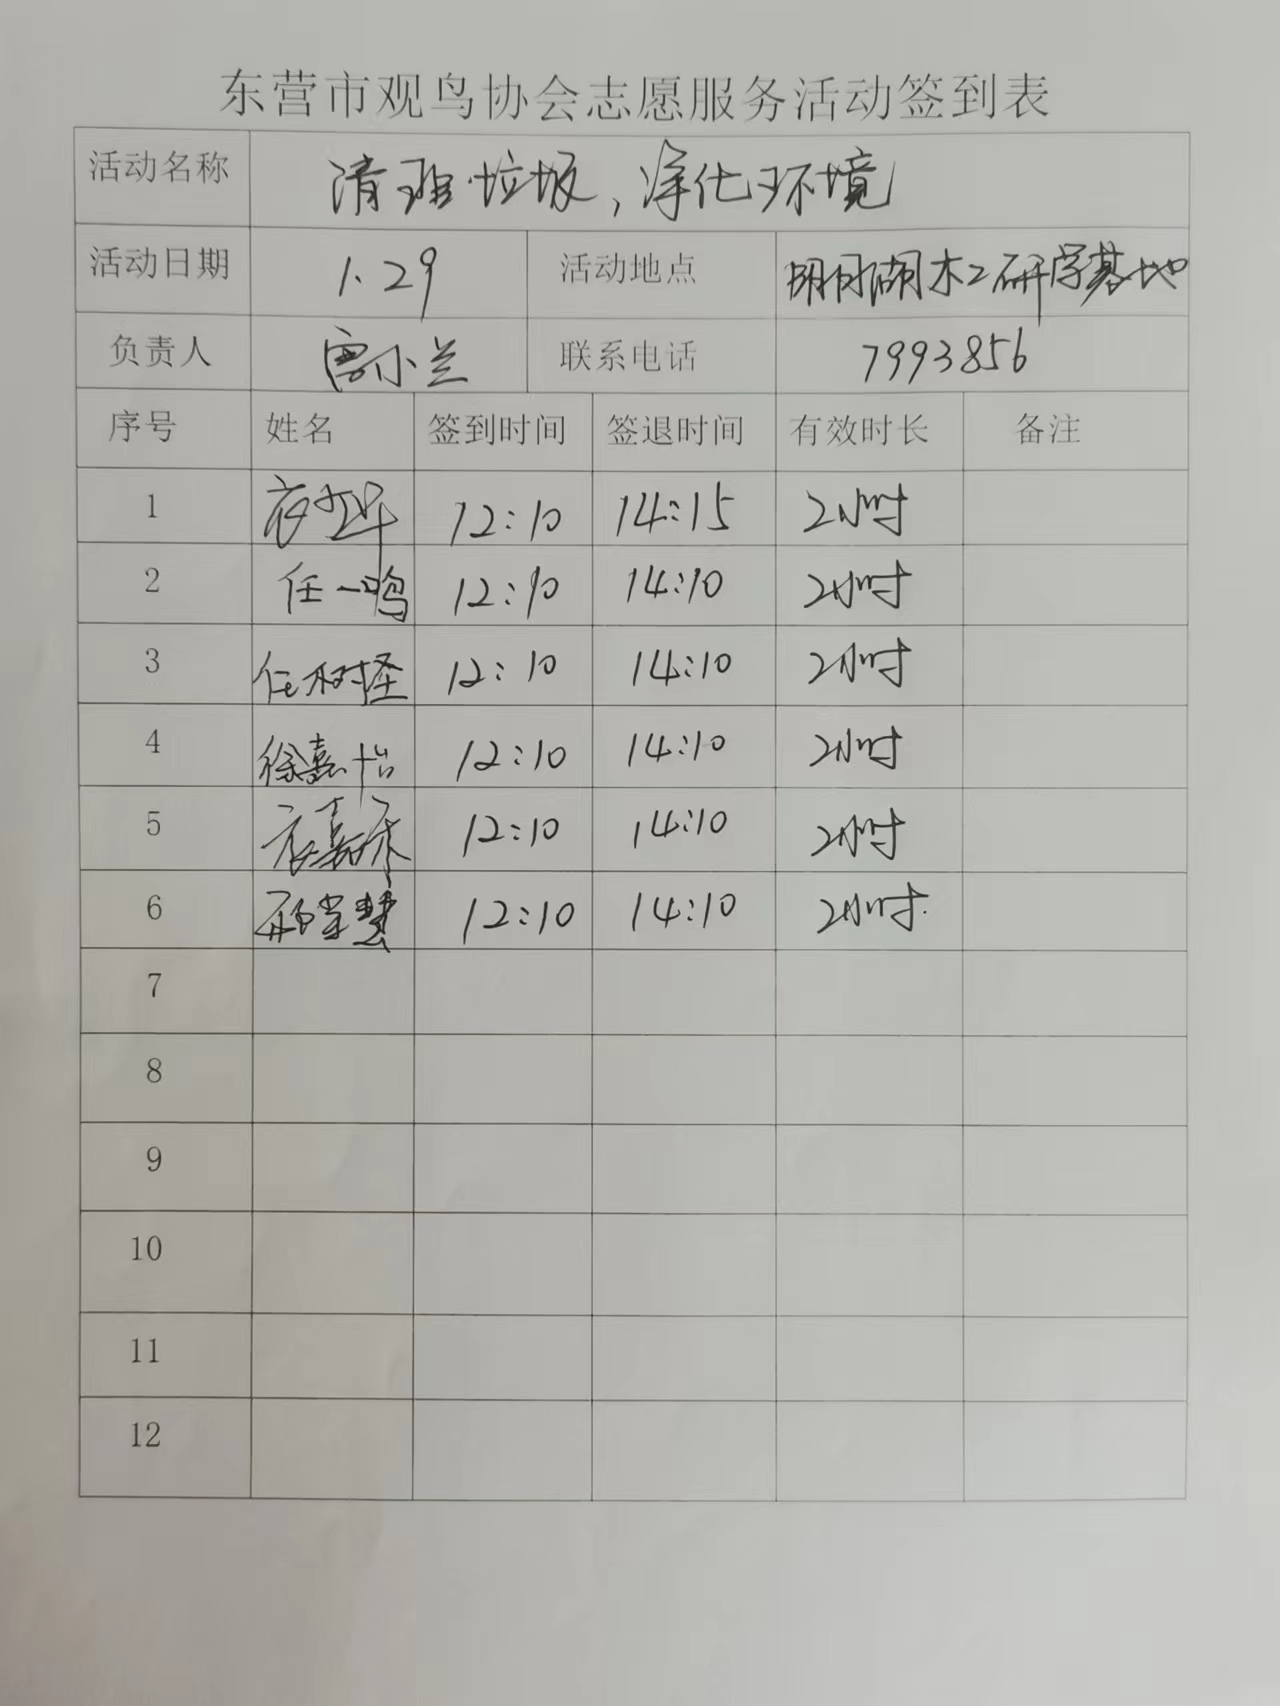 东营市观鸟协会志愿服务活动签到表
活动名称 清理垃圾,净化环境
活动日期 1.29 活动地点 明月湖木工研学基地
负责人 小兰 联系电话 7993856
序号 姓名 签到时间 签退时间 有效时长 备注
1 12:10 14:15 2小时
2 任一鸣 12:10 14:10 2小时
3 任树 12:10 14:10 2小时
4 徐嘉怡 12:10 14:10 2小时
5 衣嘉禾 12:10 14:10 2小时
6 慧 12:10 14:10 2小时
7
8
9
10
11
12